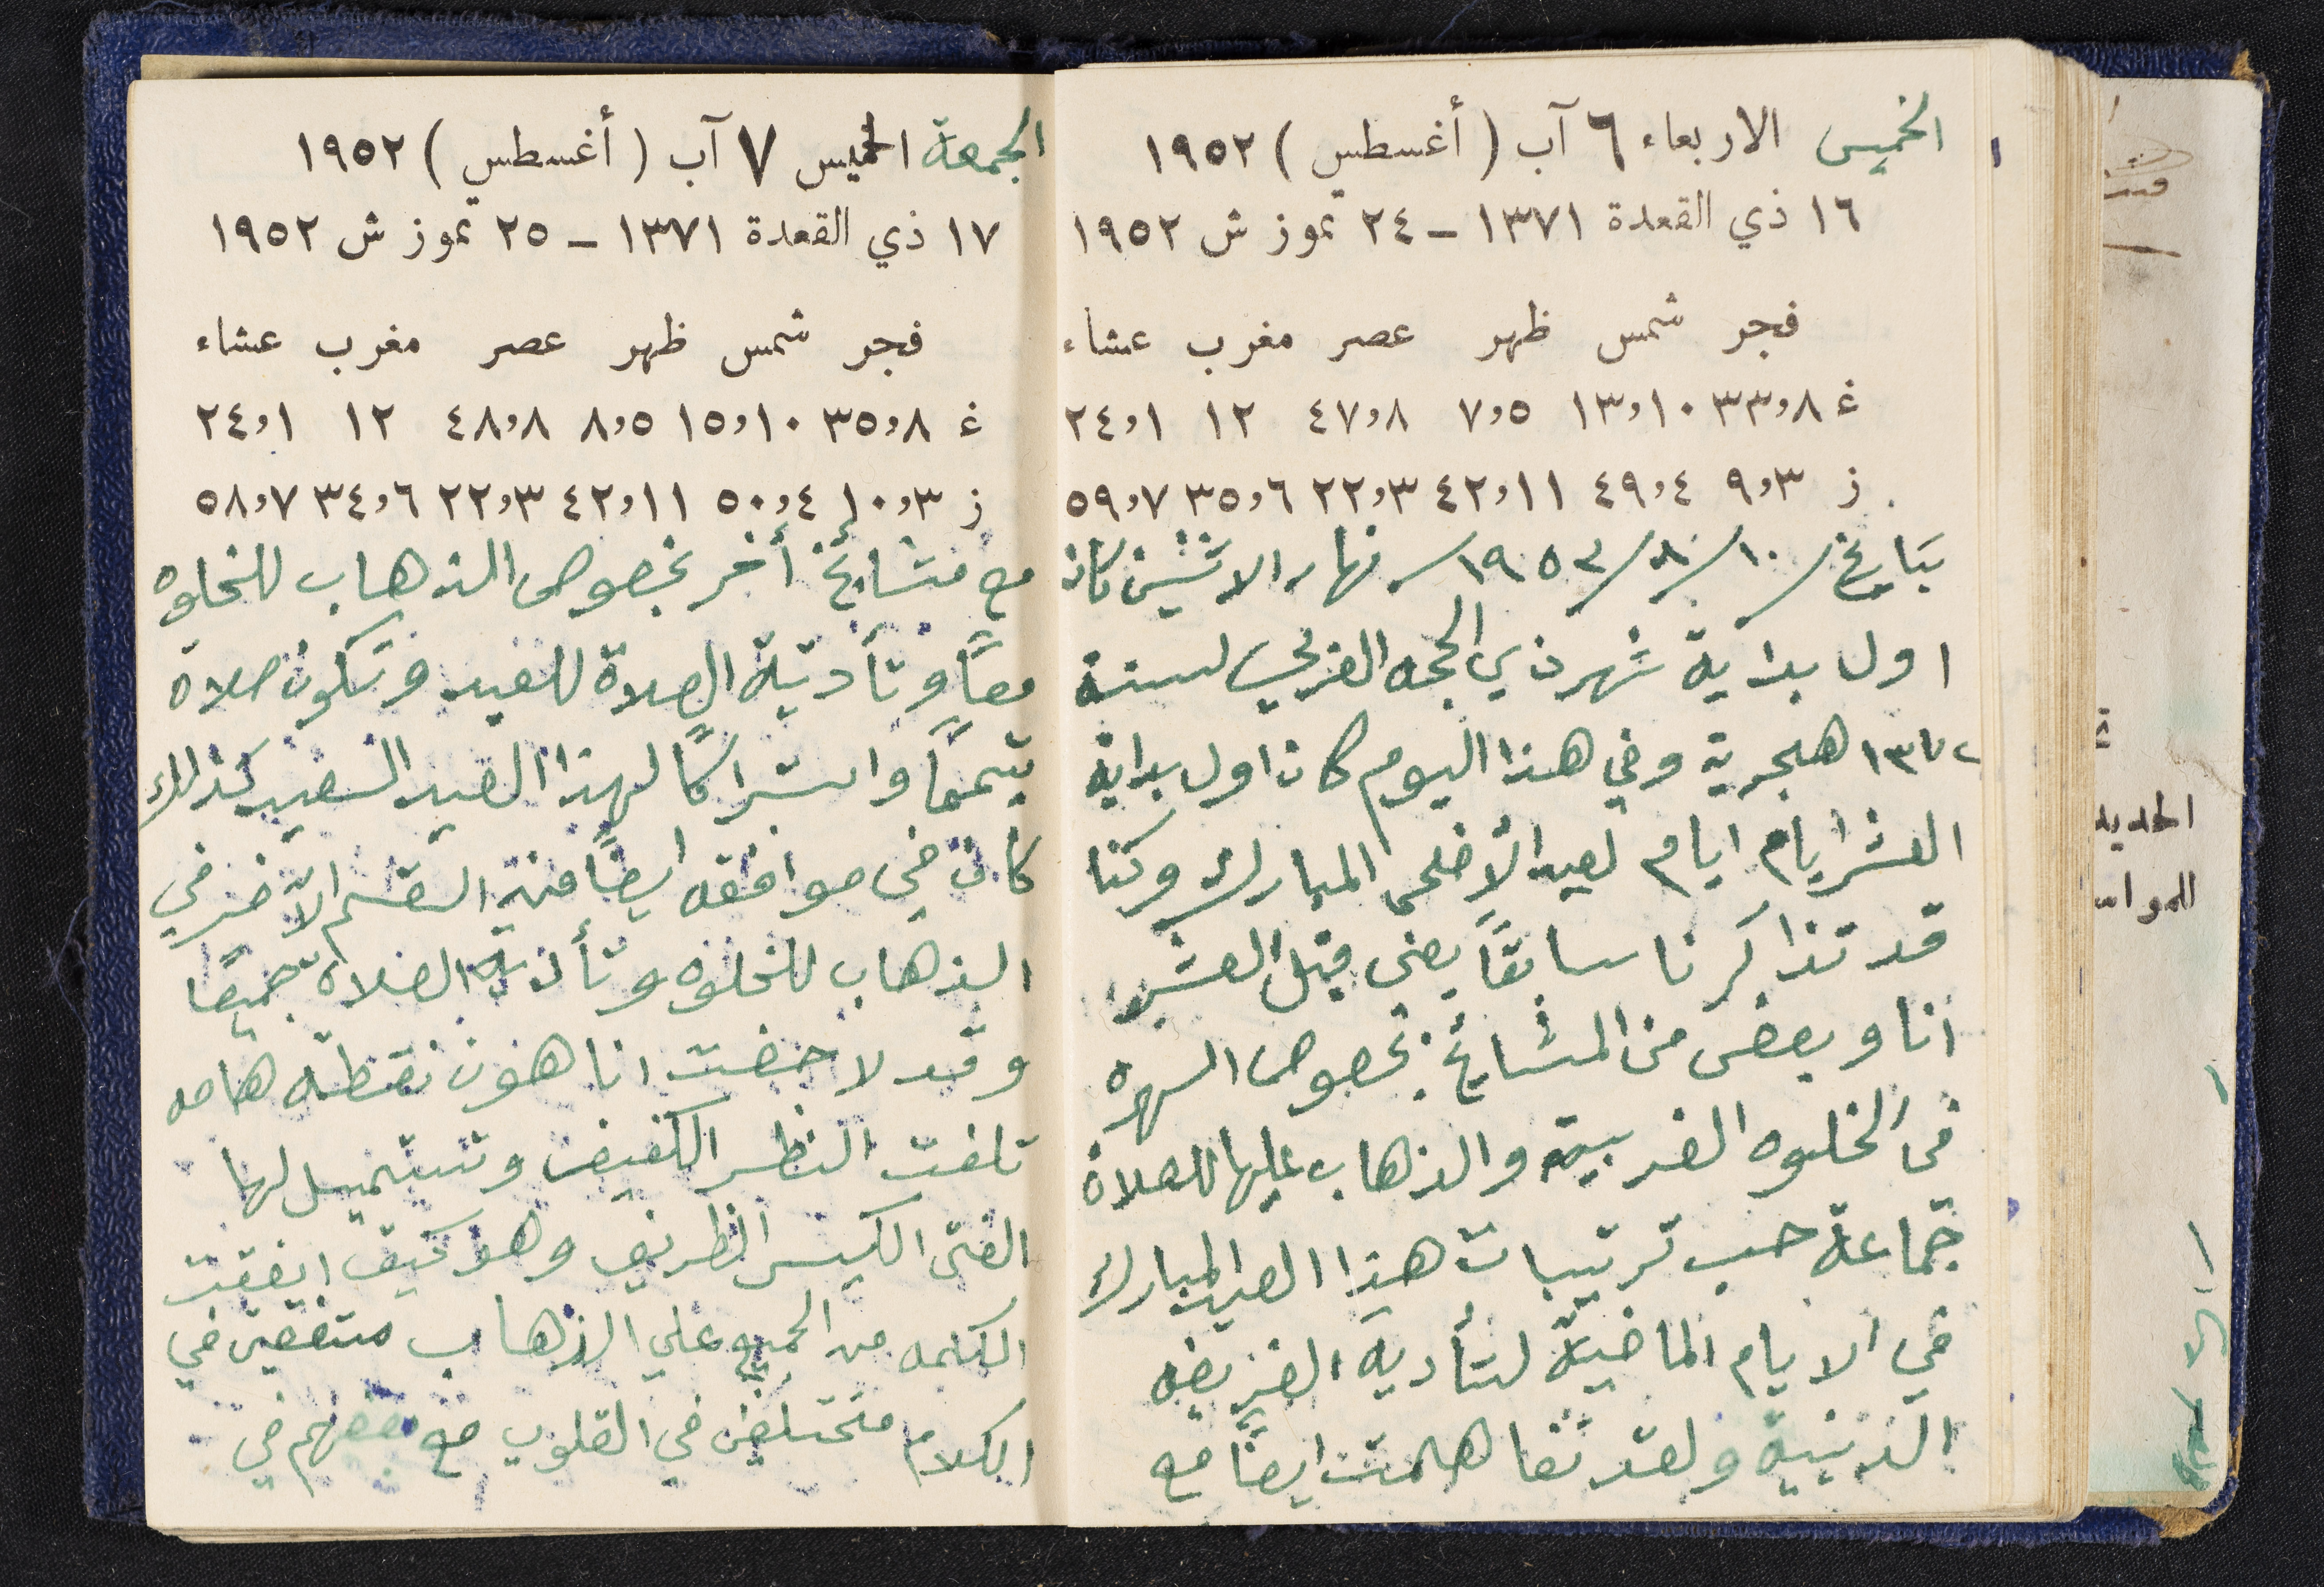 الخميس الاربعاء ٦ آب ( أغسطس ) ١٩٥٢
١٦ ذي القعدة ١٣٧١ - ٢٤ تموز ش ١٩٥٢
فجر شمس ظهر عصر مغرب عشاء
غ ٨,٣٣ ١٠,١٣ ٥,٧ ٨,٤٧ ١٢ ١,٢٤
ز ٣,٩ ٤,٤٩ ١١,٤٢ ٣,٢٢ ٦,٣٥ ٧,٥٩
بتاريخ ١٠/٨/١٩٥٣ نهار الاثنين كان
اول بداية شهر ذي الحجه العربي لسنة
١٣٧٢ هجرية وفي هذا اليوم كان اول بداية
العشر ايام ايام لعيد الأضحى المبارك وكنا
قد تذاكرنا سابقاً يعني قبل العشر
انا وبعض من المشايخ بخصوص السهره
في الخلوه الغربية والذهاب عليها للصلاة
جماعة حسب ترتيبات هذا العيد المبارك
في الايام الماضية لتأدية الفريضه
الدينية ولقد تفاهمت ايضاً مع
الجمعة الخميس ٧ آب ( أغسطس ) ١٩٥٢
١٧ ذي القعدة ١٣٧١ - ٢٥ تموز ش ١٩٥٢
فجر شمس ظهر عصر مغرب عشاء
غ ٨,٣٥ ١٠,١٥ ٥,٨ ٨,٤٨ ١٢ ١,٢٤
ز ٣,١٠ ٤,٥٠ ١١,٤٢ ٣,٢٢ ٦,٣٤ ٧,٥٨
مع مشائخ أخر بخصوص الذهاب للخلوه
معاً وتأدية الصلاة للعيد وتكون صلاة
واشتراكاً لهذا العيد السعيد كذالك
كان في موافقه ايضاً من القسم الآخر في
الذهاب للخلوه وتأدية الصلاة جميعاً
وقد لاحضت انا هون نقطة هامه
تلفت النظر الكفيف وتستميل لها
الفتى الكيس الظريف وهو كيف اتفقت
الكلمه من الجميع علي الذهاب متفقين في
الكلام مختلفن في القلوب مع بعضهم في
الحديد